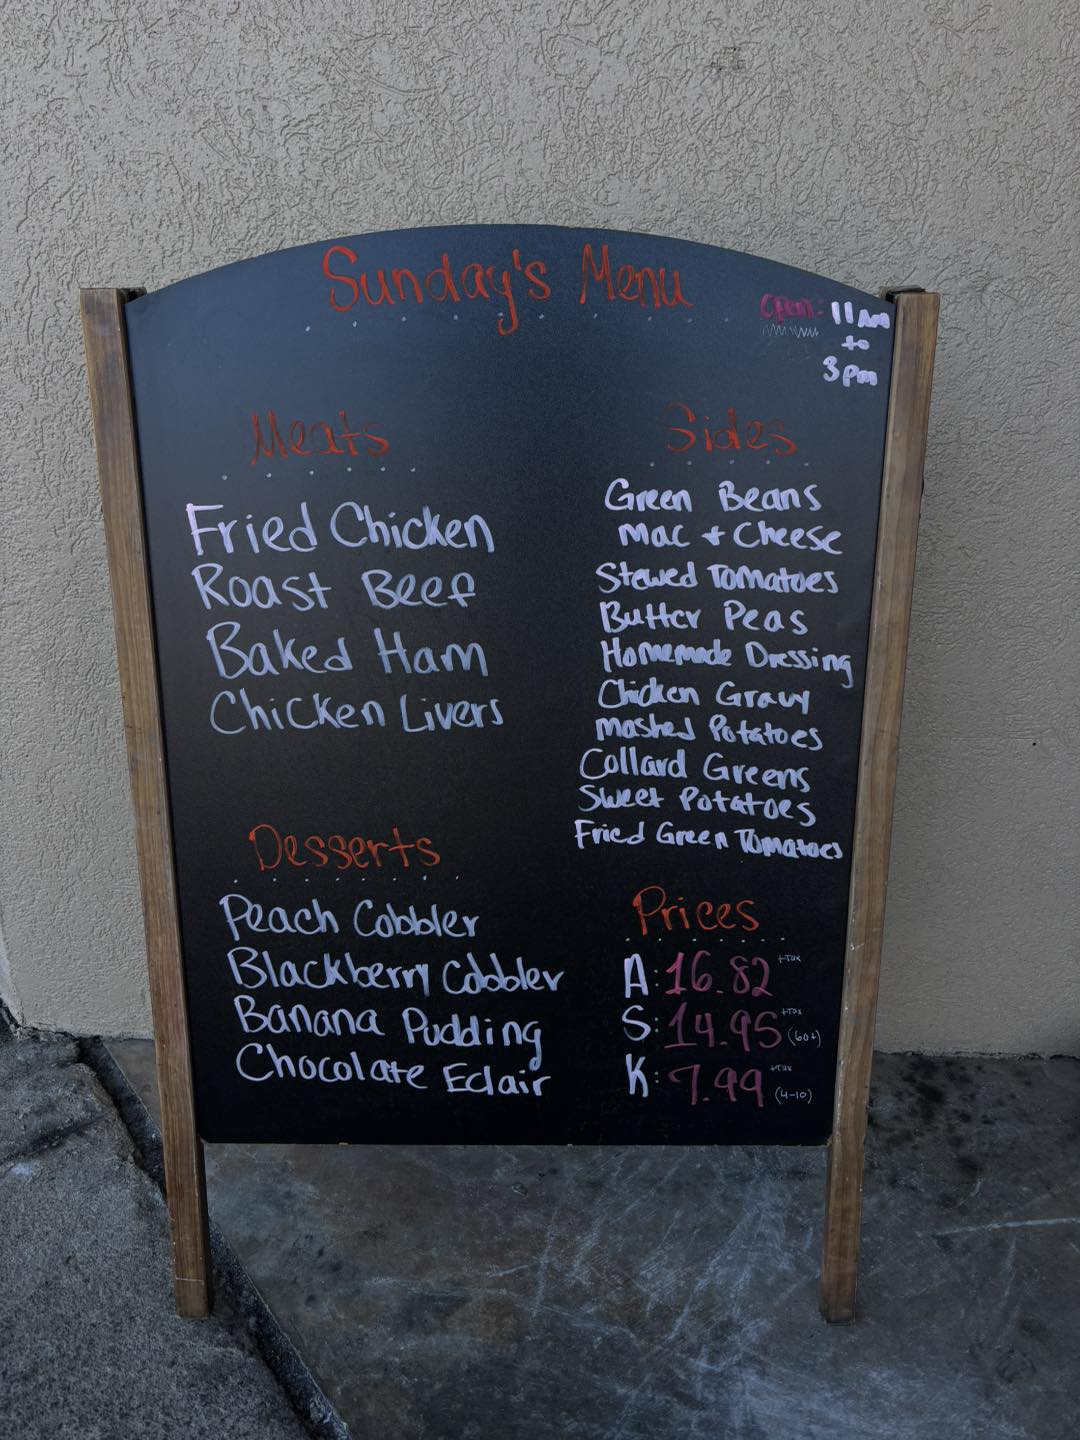 Sunday's Menu
Open: 11 Am
to
3 pm
Meats
Fried Chicken
Roast Beef
Baked Ham
Chicken Livers
Sides
Green Beans
Mac + Cheese
Stewed Tomatoes
Butter Peas
Homemade Dressing
Chicken Gravy
Mashed Potatoes
Collard Greens
Sweet Potatoes
Fried Green Tomatoes
Desserts
Peach Cobbler
Blackberry Cobbler
Banana Pudding
Chocolate Eclair
Prices
A: 16.82 +tax
S: 14.95 +tax (60+)
K: 7.99 +tax (4-10)